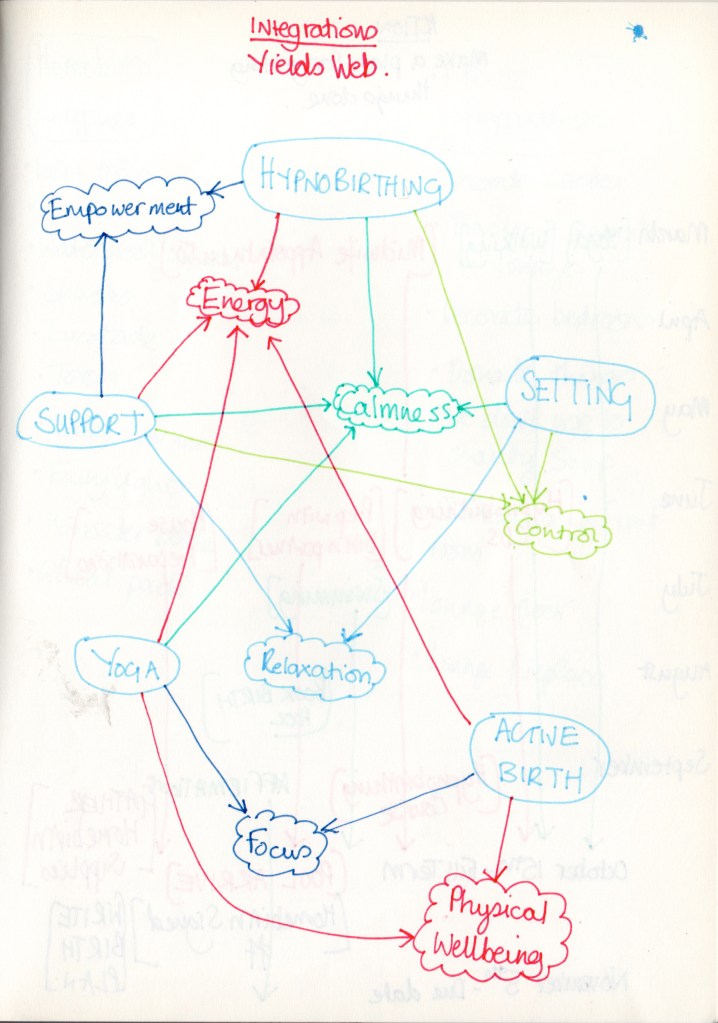 Integrations
Yields Web.
HYPNOBIRTHING
Empowerment
Energy
SETTING
Calmness
SUPPORT
Control
YOGA
Relaxation
ACTIVE
BIRTH
Focus
Physical
Wellbeing